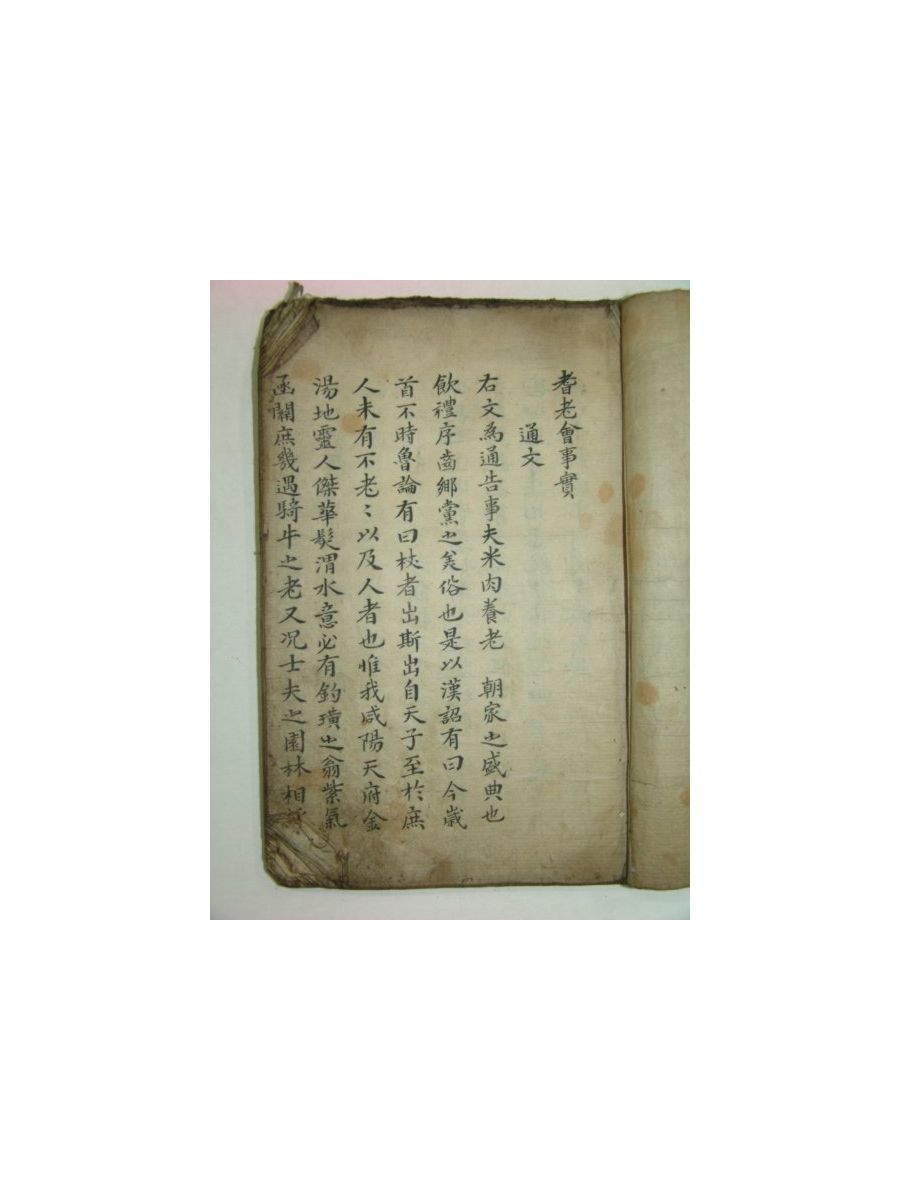 耆老會事實
通文
右文為通告事夫米肉養老 朝家之盛典也
飲禮序齒鄉黨之美俗也是以漢詔有曰今歲
首不時魯論有曰杖者出斯出自天子至於庶
人未有不老〻以及人者也惟我咸陽天府金
湯地靈人傑華髮渭水意必有釣璜之翁紫氣
函關庶幾遇騎牛之老又況士夫之園林相